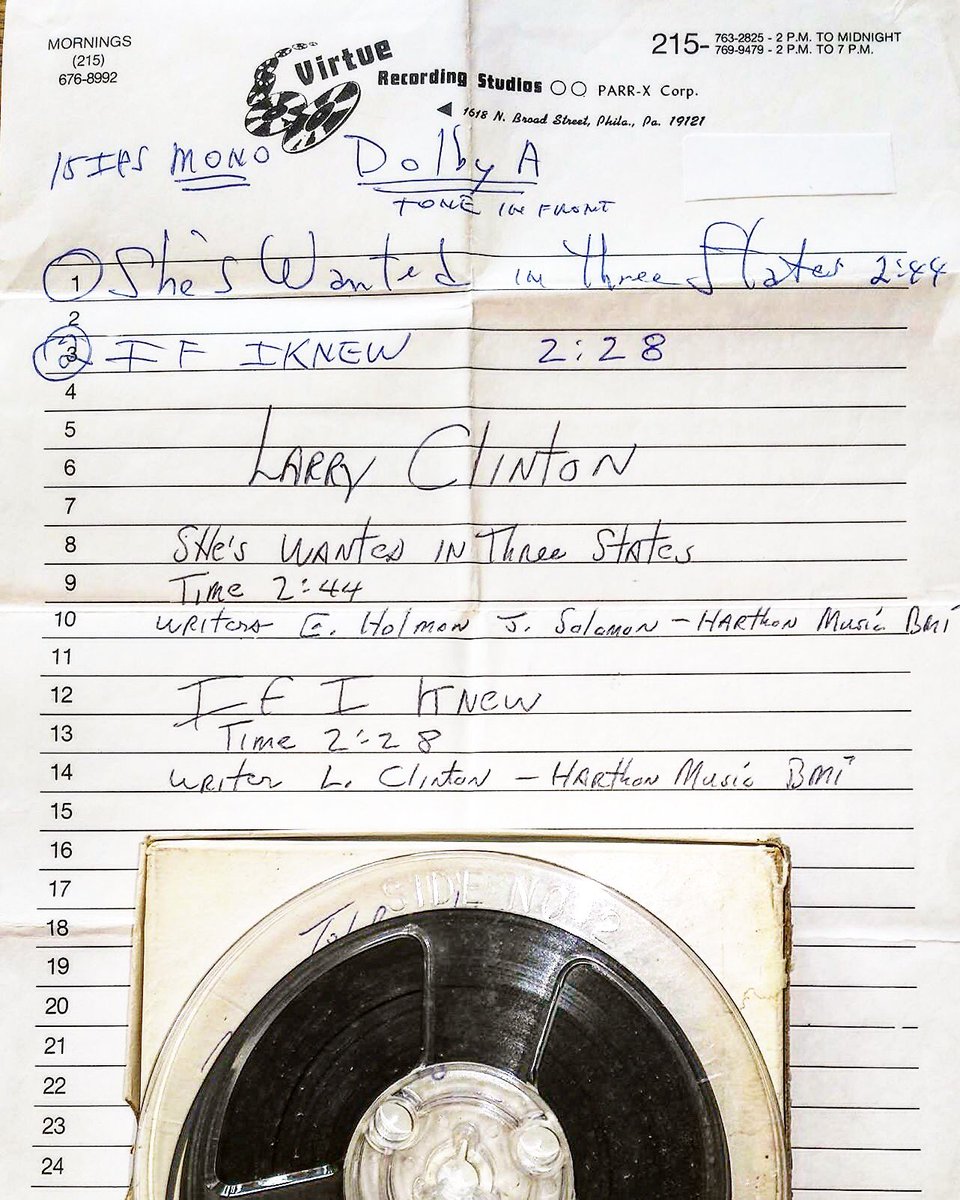 MORNINGS
(215)
676-8992
Virtue
Recording Studios PARR-X Corp.
1618 N. Broad Street, Phila., Pa. 19121
215- 763-2825 - 2 P.M. TO MIDNIGHT
769-9479 - 2 P.M. TO 7 P.M.
15 IPS MONO Dolby A
TONE IN FRONT
1 She's Wanted in Three States 2:44
2
3 2 IF I KNEW 2:28
4
5
6 LARRY CLINTON
7
8 SHe's WANTeD IN Three STATes
9 Time 2:44
10 writers E. Holman J. Solomon - HARThon Music BMI
11
12 IF I KNew
13 Time 2:28
14 writer L. Clinton - HARThon Music BMI
15
16
17
18
19
20
21
22
23
24
SIDE NO. 2